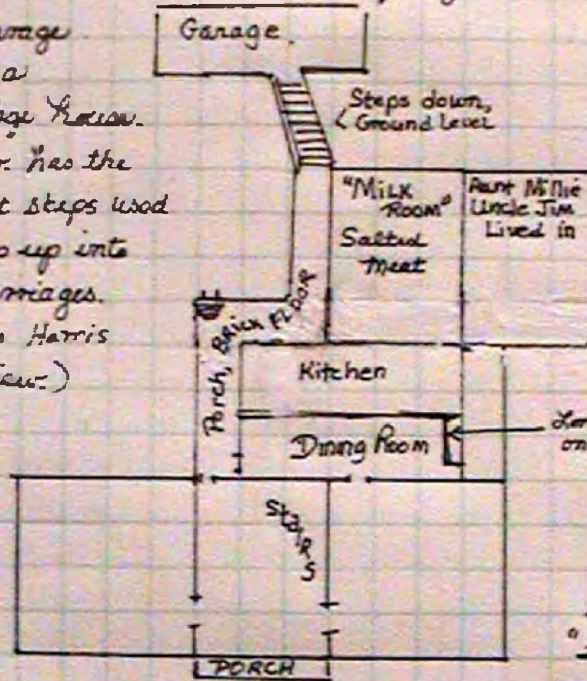 Garage
a
house.
has the
steps used
up into
Harris
Garage
Steps down,
Ground Level
"Milk
Room"
Salted
Meat
Aunt Millie
Uncle Jim
Lived in
Porch, Brick Floor
Kitchen
Dining Room
on
Stairs
PORCH